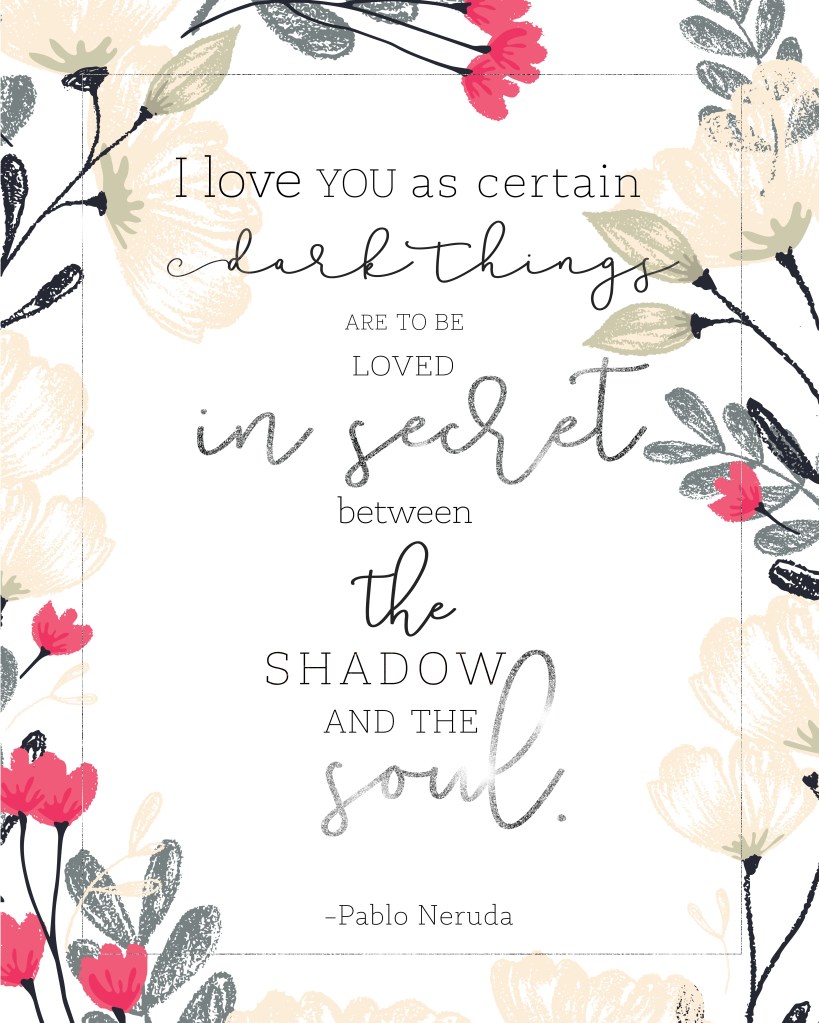 I love YOU as certain
dark things
ARE TO BE
LOVED
in secret
between
the
SHADOW
AND THE
soul.
–Pablo Neruda